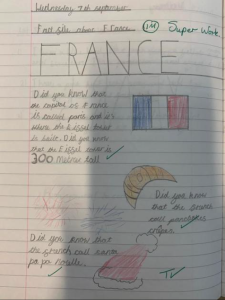 Wednesday 7th september
Fact file about France
1M Super Work
FRANCE
Did you know that
the capital of France
is called paris and is
where the Eiffel tower
is built. Did you now
that the Eiffel tower is
300 Metres tall
Did you know
that the
call
crêpes
Did you know that
the french call santa
pa pa Noelle